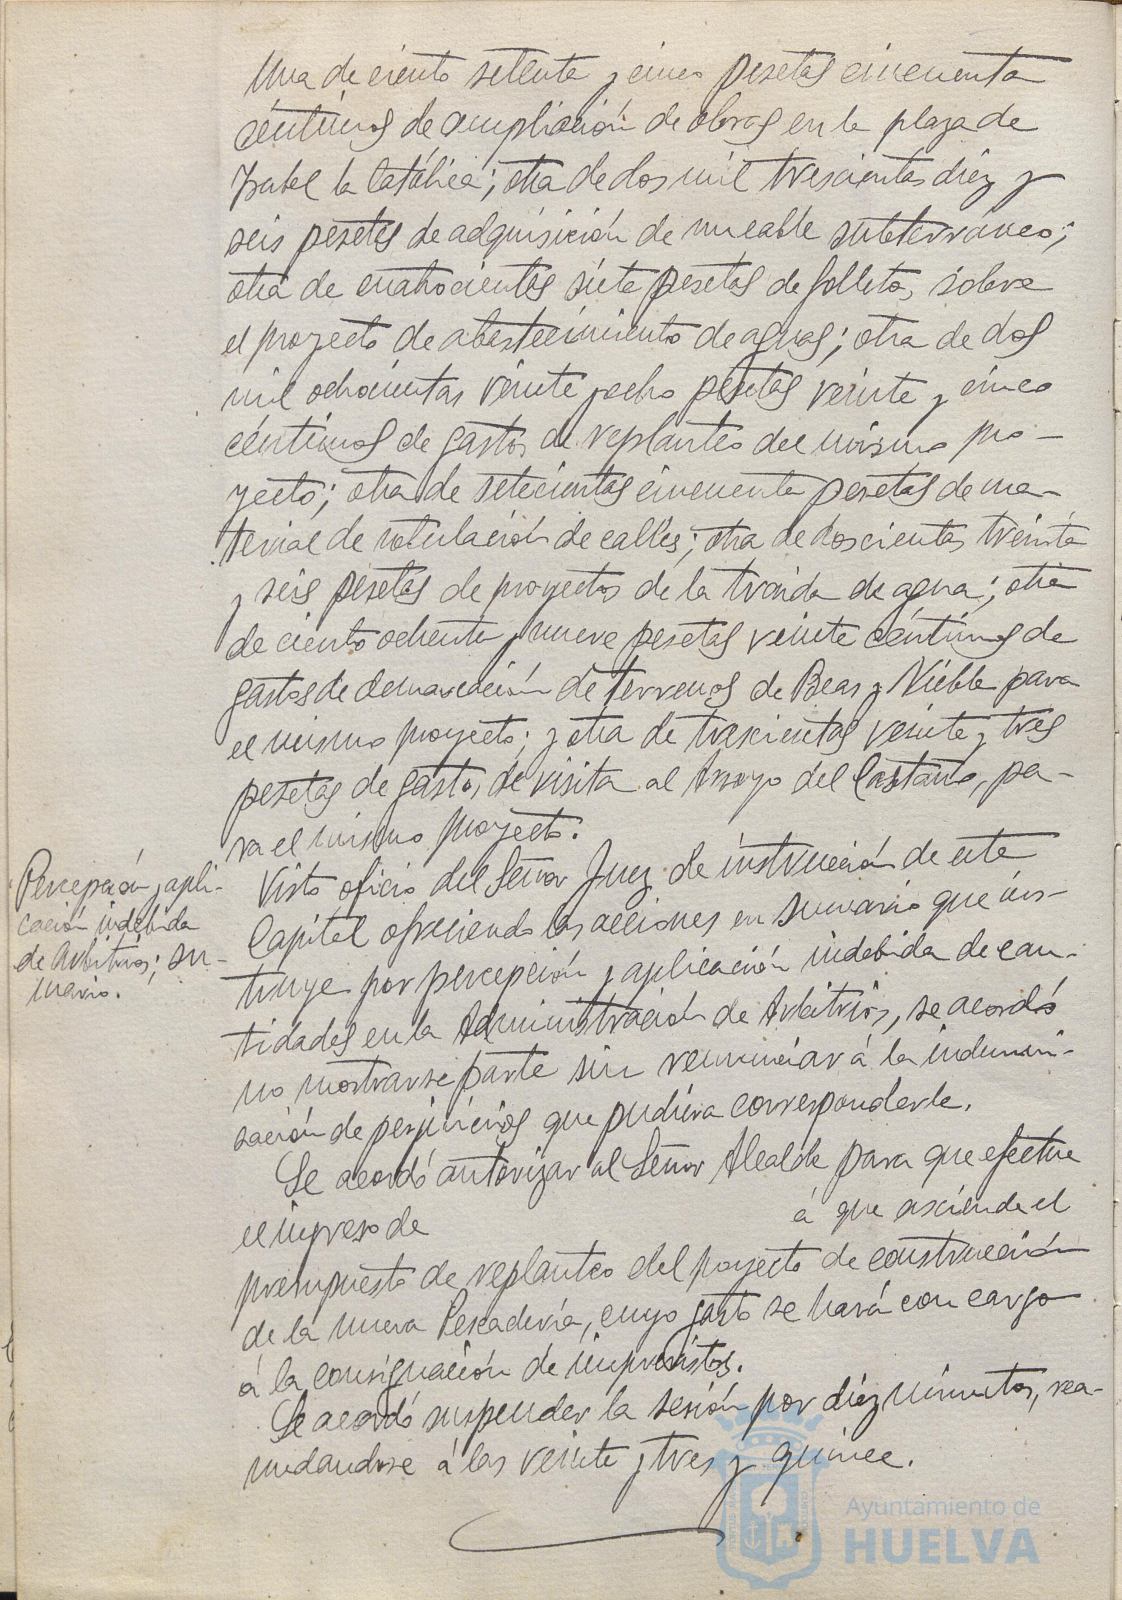 Una de ciento setenta y cinco pesetas cincuenta
céntimos de ampliación de obras en la plaza de
Isabel la Católica; otra de dos mil trescientas diez y
seis pesetas de adquisición de un cable subterráneo;
otra de cuatrocientas siete pesetas de folletos sobre
el proyecto de abastecimiento de aguas; otra de dos
mil ochocientas veinte y ocho pesetas veinte y cinco
céntimos de gastos de replanteo del mismo pro-
yecto; otra de setecientas cincuenta pesetas de ma-
terial de rotulación de calles; otra de doscientas treinta
y seis pesetas de proyectos de la traida de agua; otra
de ciento ochenta y nueve pesetas veinte céntimos de
gastos de demarcación de terrenos de Beas y Niebla para
el mismo proyecto; y otra de trescientas veinte y tres
pesetas de gastos de visita al Arroyo del Castaño, pa-
ra el mismo proyecto.
Percepción y apli-
cación indebida
de Arbitrios; su-
mario.
Visto oficio del Señor Juez de instrucción de esta
Capital ofreciendo las acciones en sumario que ins-
truye por percepción y aplicación indebida de can-
tidades en la Administración de Arbitrios, se acordó
no mostrarse parte sin renunciar á la indemni-
sación de perjuicios que pudiera corresponderle.
Se acordó autorizar al Señor Alcalde para que efectue
el ingreso de á que asciende el
presupuesto de replanteo del proyecto de construcción
de la nueva Pescadería, cuyo gasto se hará con cargo
á la consignación de imprevistos.
Se acordó suspender la sesión por diez minutos, rea-
nudandose á las veinte y tres y quince.
Ayuntamiento de
HUELVA